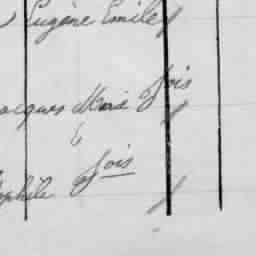 Eugène Emile
acques Marie fois
ophile fois